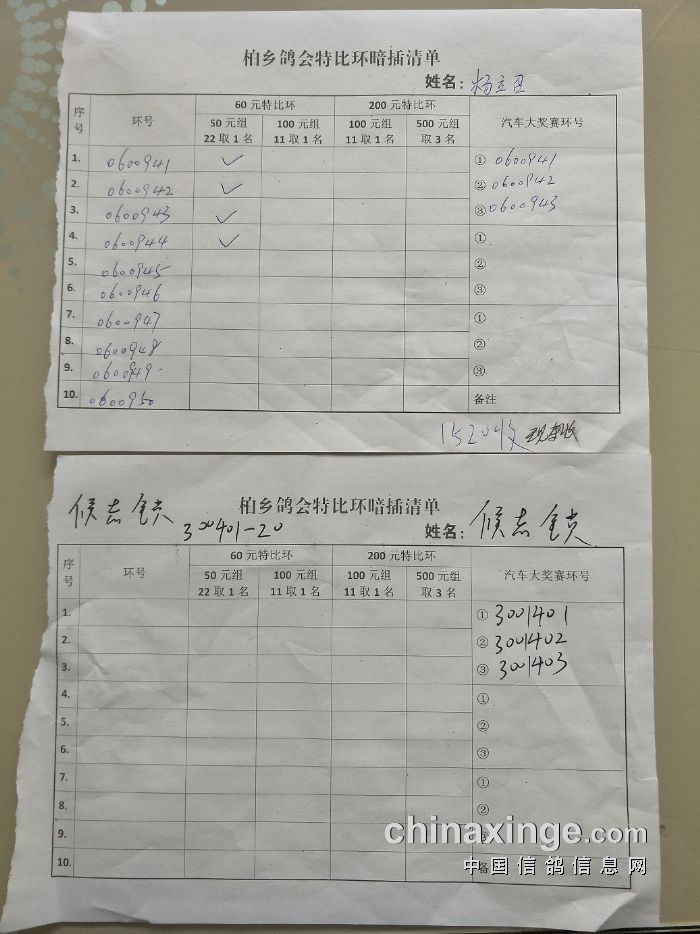 柏乡鸽会特比环暗插清单
姓名：杨立
序号 环号 60元特比环 200元特比环 汽车大奖赛环号
50元组 22取1名 100元组 11取1名 100元组 11取1名 500元组 取3名
1. 0600941 ✓ ① 0600941
2. 0600942 ✓ ② 0600942
3. 0600943 ✓ ③ 0600943
4. 0600944 ✓ ①
5. 0600945 ②
6. 0600946 ③
7. 0600947 ①
8. 0600948 ②
9. 0600949 ③
10. 0600950 备注
1520收
柏乡鸽会特比环暗插清单
候志锁 300401-20 姓名：候志锁
序号 环号 60元特比环 200元特比环 汽车大奖赛环号
50元组 22取1名 100元组 11取1名 100元组 11取1名 500元组 取3名
1. ① 3001401
2. ② 3001402
3. ③ 3001403
4. ①
5. ②
6. ③
7. ①
8. ②
9. ③
10. 备
chinaxinge.com
中国信鸽信息网